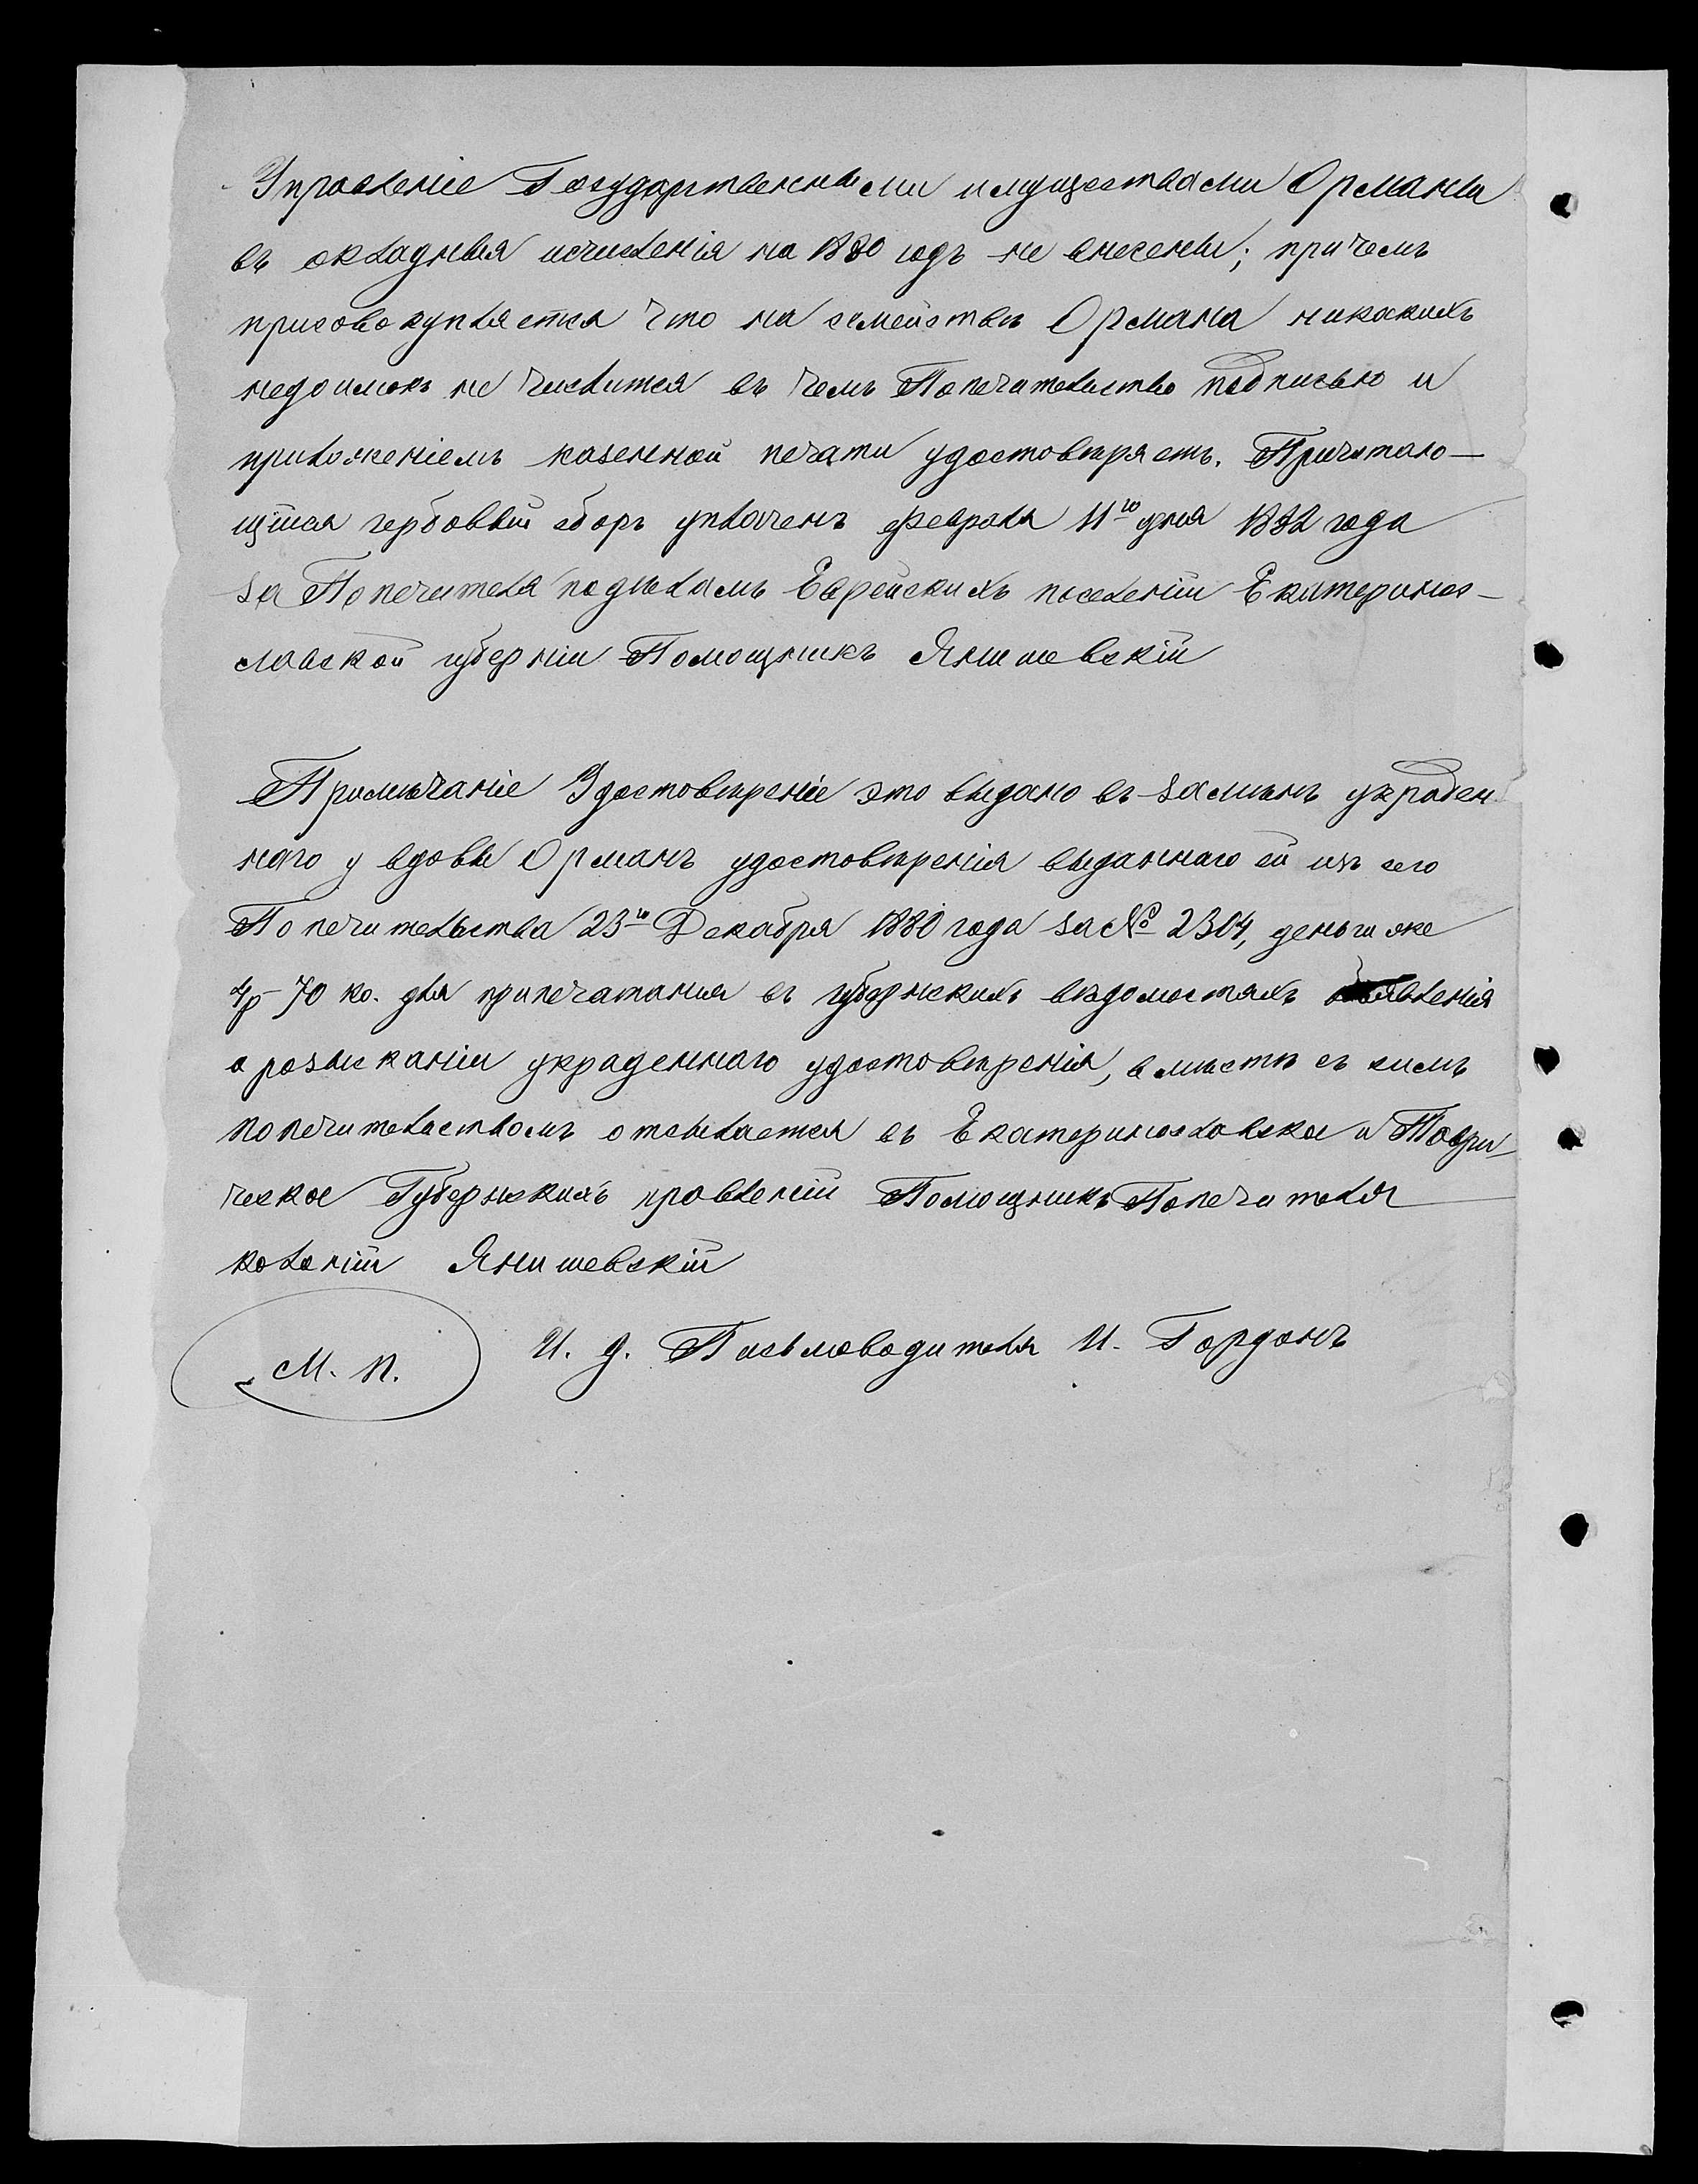 Управленіе Государственными имуществами Орманы
въ окладныя исчисленія на 1880 годъ не внесены; причемъ
присовокупляется что на семействѣ Ормана никакихъ
недоимокъ не числится въ чемъ Попечительство подписью и
приложеніемъ казенной печати удостовѣряетъ. Причитаю-
щійся гербовый сборъ уплаченъ февраля 11го дня 1882 года
за Попечителя подѣламъ Еврейскихъ поселеній Екатеринос-
лавской губерніи Помощникъ Янишевскій
Примѣчаніе Удостовѣреніе это выдано въ замѣнъ украден
наго у вдовы Орманъ удостовѣренія выданнаго ей изъ сего
Попечительства 23го Декабря 1880 года за № 2304, деньги же
4р 70 ко. для припечатания въ губернскихъ вѣдомостяхъ объявленія
о розысканіи украденнаго удостовѣренія, вмѣстѣ съ симъ
попечительствомъ отсылается въ Екатеринославское и Таври
ческое Губернскихъ правленій Помощникъ Попечителя
колоній Янишевскій
М. П. И. д. Письмоводителя И. Гордонъ